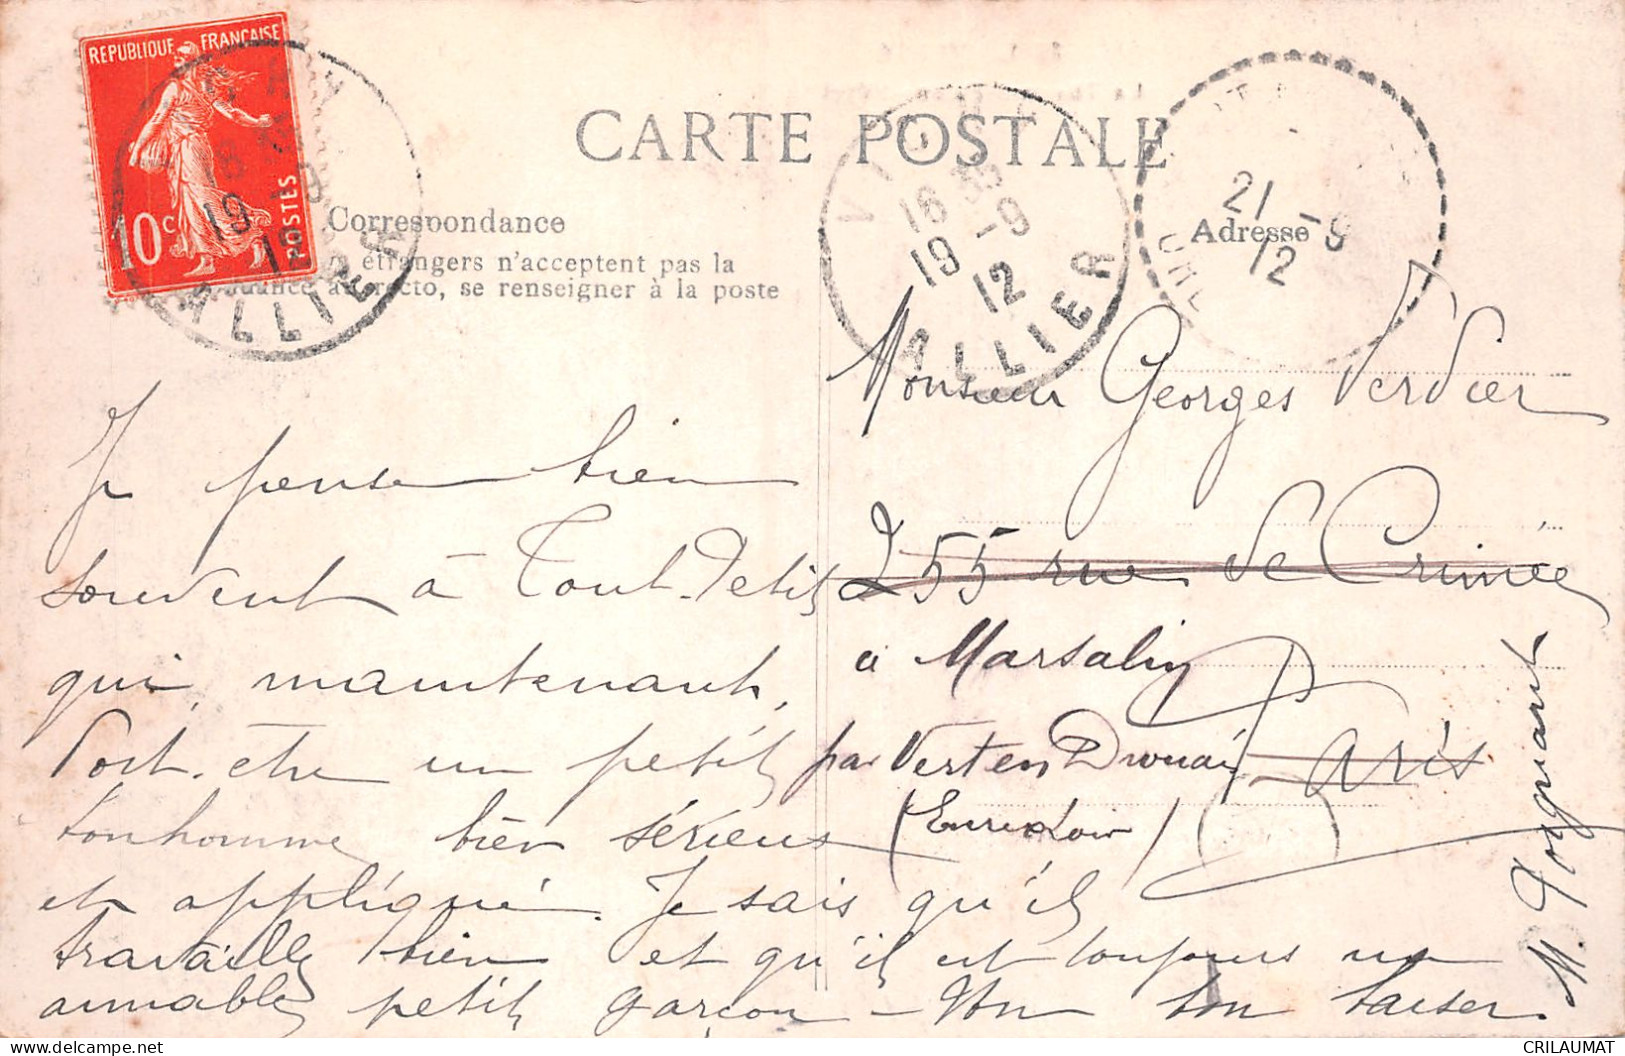 REPUBLIQUE FRANÇAISE
10c POSTES
ALLIER
CARTE POSTALE
VI
16
19 -9
12
ALLIER
21 -9
12
Correspondance
étrangers n'acceptent pas la
recto, se renseigner à la poste
Adresse
Monsieur Georges Verdier
255 rue de Crimée
à Marsalin
par Vert en Drouais
Paris
(Eure & Loir)
Je pense bien
souvent à Tout-Petit
qui, maintenant,
doit-être un petit
bonhomme bien sérieux
et appliqué. Je sais qu'il
travaille bien et qu'il est toujours un
aimable petit garçon - Mon bon baiser.
CRILAUMAT
delcampe.net